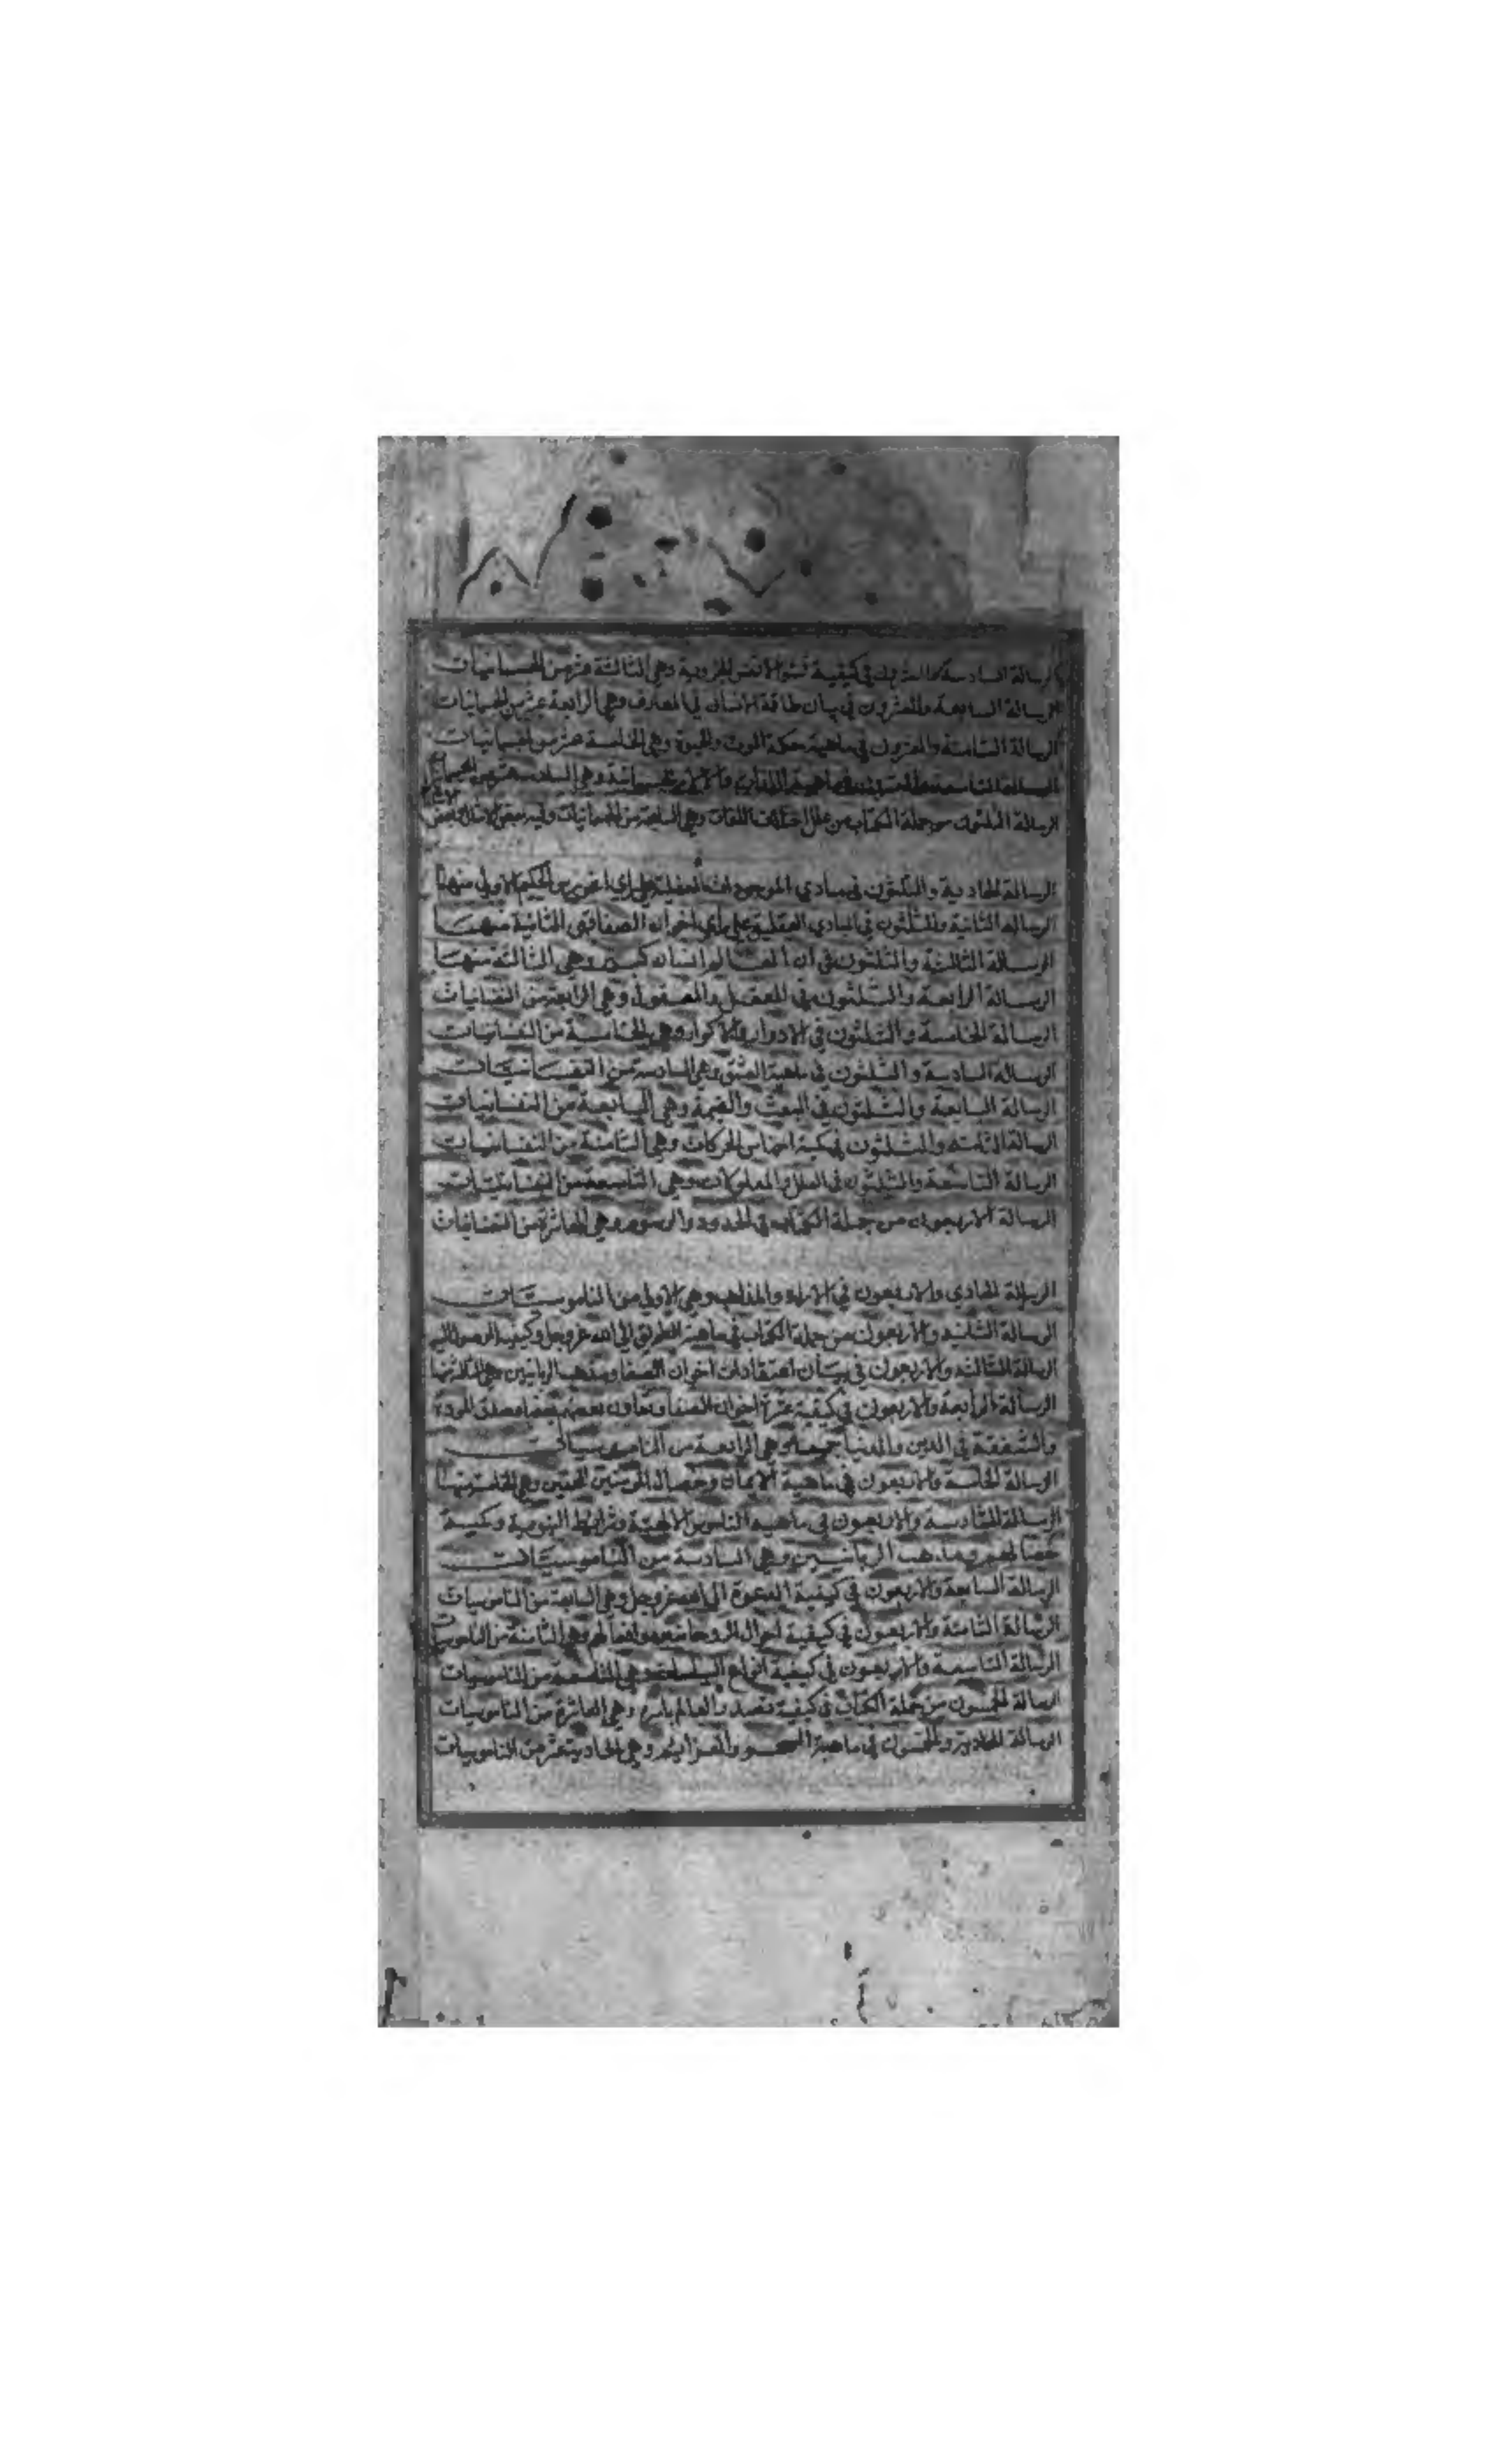 الرسالة السادسة والعشرون في كيفية نشو الانفس الجزوية وهي الثالثة عشر من الجسمانيات
الرسالة السابعة والعشرون في بيان طاقة الانسان في المعارف وهي الرابعة عشر من الجسمانيات
الرسالة الثامنة والعشرون في ماهية حكمة الموت والحيوة وهي الخامسة عشر من الجسمانيات
الرسالة التاسعة والعشرون في ماهية اللذات والالام وهي السادسة عشر من
الرسالة الثلثون من جملة الكتاب من علل اختلاف اللغات وهي السابعة عشر من الجسمانيات وفيه بعض
الرسالة الحادية والثلثون في مبادي الموجودات العقلية على راي الحكيم الاولى منها
الرسالة الثانية والثلثون في المبادي العقلية على راي اخوان الصفا وهي الثانية منها
الرسالة الثالثة والثلثون في ان العالم انسان كبير وهي الثالثة منها
الرسالة الرابعة والثلثون في العقل والمعقول وهي الرابعة من النفسانيات
الرسالة الخامسة والثلثون في الادوار والاكوار وهي الخامسة من النفسانيات
الرسالة السادسة والثلثون في ماهية العشق وهي السادسة من النفسانيات
الرسالة السابعة والثلثون في البعث والقيمة وهي السابعة من النفسانيات
الرسالة الثامنة والثلثون في كمية اجناس الحركات وهي الثامنة من النفسانيات
الرسالة التاسعة والثلثون في العلل والمعلولات وهي التاسعة من النفسانيات
الرسالة الاربعون من جملة الكتاب في الحدود والرسوم وهي العاشرة من النفسانيات
الرسالة الحادي والاربعون في الاراء والمذاهب وهي الاولى من الناموسيات
الرسالة الثانية والاربعون من جملة الكتاب في ماهية الطريق الى الله عز وجل وكيفية الوصول اليه
الرسالة الثالثة والاربعون في بيان اعتقادات اخوان الصفا ومذهب الربانيين وهي الثالثة منها
الرسالة الرابعة والاربعون في كيفية عشرة اخوان الصفا وتعاون بعضهم بعضا وصدق المودة
والشفقة في الدين والدنيا جميعا وهي الرابعة من الناموسيات
الرسالة الخامسة والاربعون في ماهية الايمان وخصال المومنين المحقين وهي الخامسة منها
الرسالة السادسة والاربعون في ماهية الناموس الالهية وشرايط النبوية وكمية
خصالهم ومذهب الربانيين وهي السادسة من الناموسيات
الرسالة السابعة والاربعون في كيفية الدعوة الى الله عز وجل وهي السابعة من الناموسيات
الرسالة الثامنة والاربعون في كيفية احوال الروحانيين وافعالهم وهي الثامنة من الناموسيات
الرسالة التاسعة والاربعون في كيفية انواع السياسات وهي التاسعة من الناموسيات
الرسالة الخمسون من جملة الكتاب في كيفية نضد العالم باسره وهي العاشرة من الناموسيات
الرسالة الحادية والخمسون في ماهية السحر والعزايم وهي الحادية عشر من الناموسيات